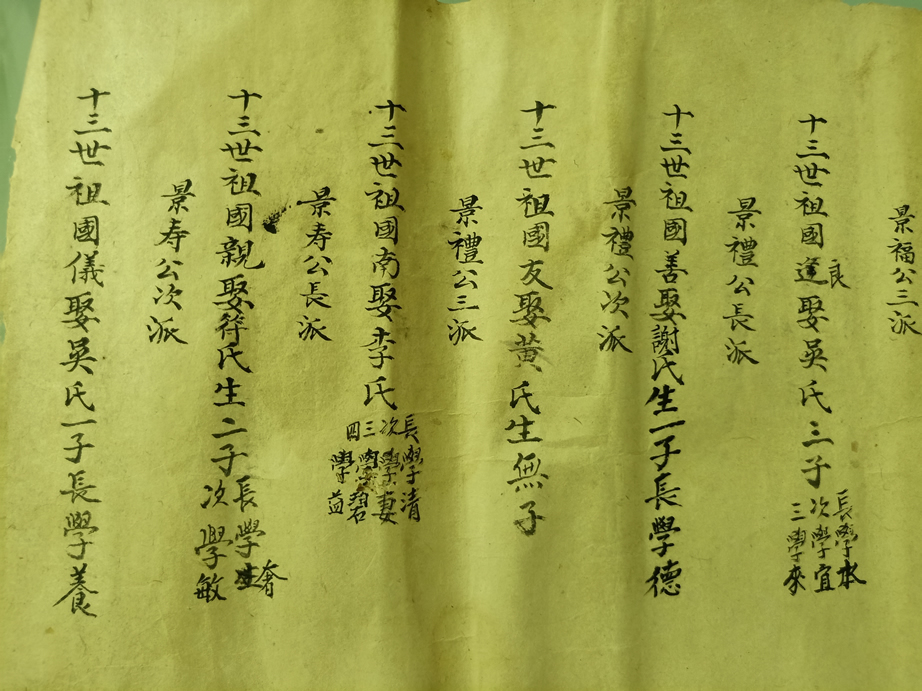 景福公三派
十三世祖國進良娶吳氏三子長學本次學宜三學來
景禮公長派
十三世祖國善娶謝氏生一子長學德
景禮公次派
十三世祖國友娶黃氏生無子
景禮公三派
十三世祖國南娶李氏長學清次學妻三學碧四學益
景寿公長派
十三世祖國親娶符氏生二子長學奢次學敏
景寿公次派
十三世祖國儀娶吳氏一子長學養